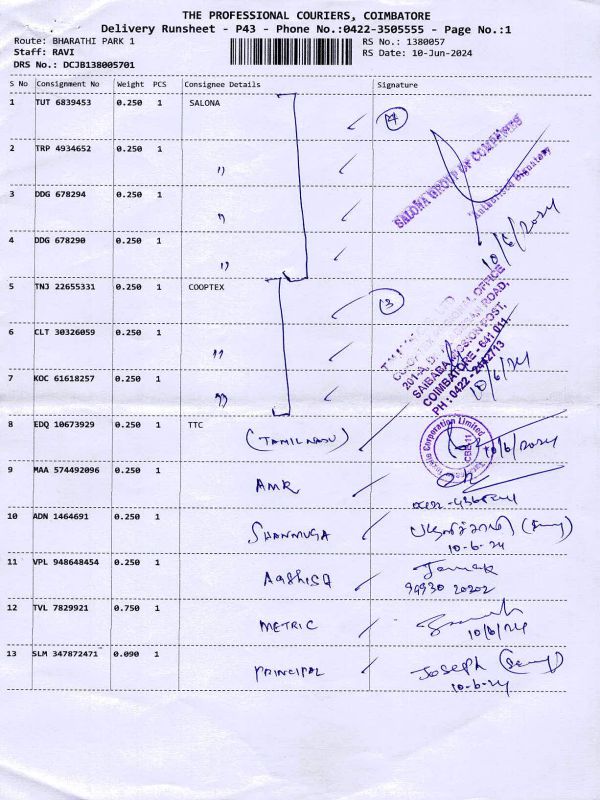 THE PROFESSIONAL COURIERS, COIMBATORE
Delivery Runsheet - P43 - Phone No.:0422-3505555 - Page No.:1
Route: BHARATHI PARK 1 RS No.: 1380057
Staff: RAVI RS Date: 10-Jun-2024
DRS No.: DCJB138005701
S No Consignment No Weight PCS Consignee Details Signature
1 TUT 6839453 0.250 1 SALONA
4
2 TRP 4934652 0.250 1 "
SALONA GROUP OF COMPANIES
Authorised Signatory
3 DDG 678294 0.250 1 "
10/6/2024
4 DDG 678290 0.250 1 "
5 TNJ 22655331 0.250 1 COOPTEX
3
REGIONAL OFFICE
ROAD,
SAIBABA MISSION POST,
COIMBATORE - 641 011.
PH : 0422 - 2442713
10/6/24
6 CLT 30326059 0.250 1 "
7 KOC 61618257 0.250 1 "
8 EDQ 10673929 0.250 1 TTC
(TAMIL NADU)
Corporation Limited
CBE-11
10/6/2024
9 MAA 574492096 0.250 1
AMR
10 ADN 1464691 0.250 1
SHANMUGA
10-6-24
11 VPL 948648454 0.250 1
99930 20202
12 TVL 7829921 0.750 1
METRIC
10/6/24
13 SLM 347872471 0.090 1
PRINCIPAL Joseph
10-6-24